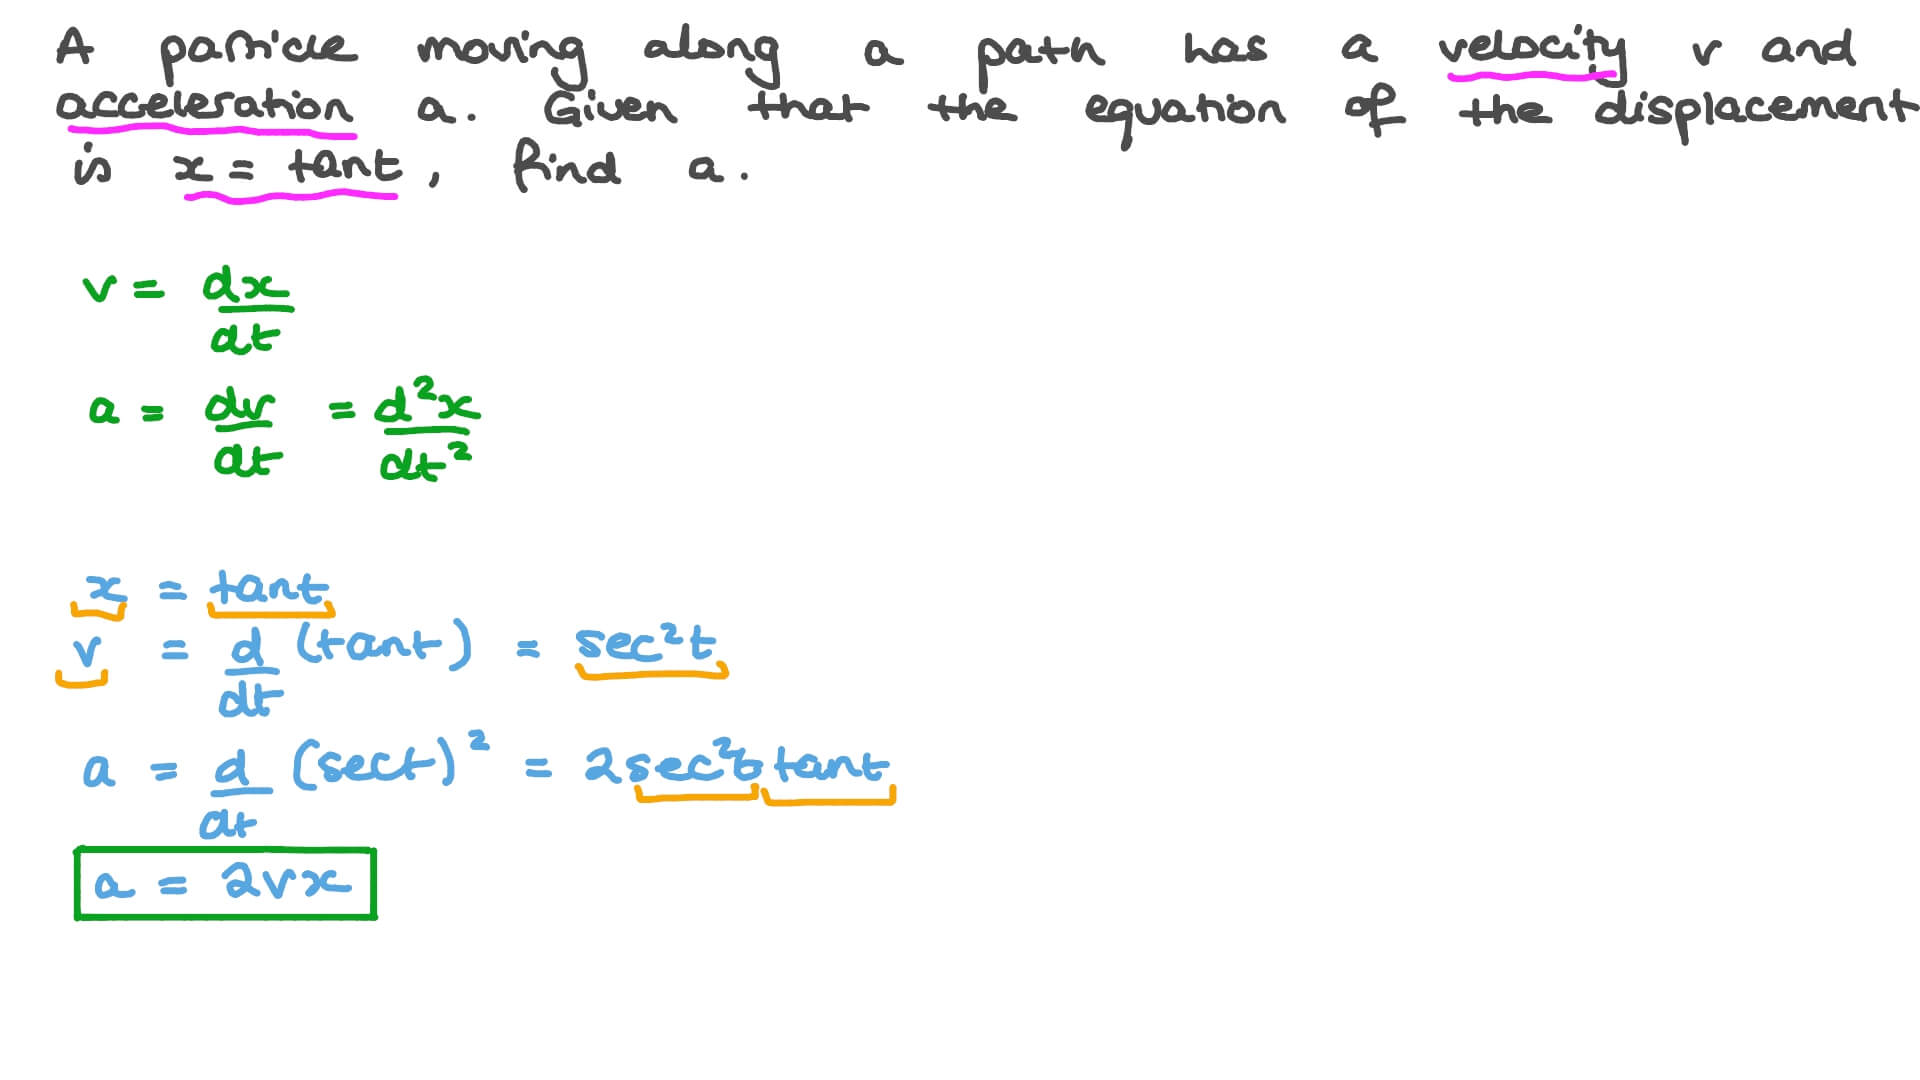 A particle moving along a path has a velocity v and
acceleration a. Given that the equation of the displacement
is x = tant, find a.
v = dx/dt
a = dv/dt = d²x/dt²
x = tant
v = d/dt (tant) = sec²t
a = d/dt (sect)² = 2sec²t tant
a = 2vx